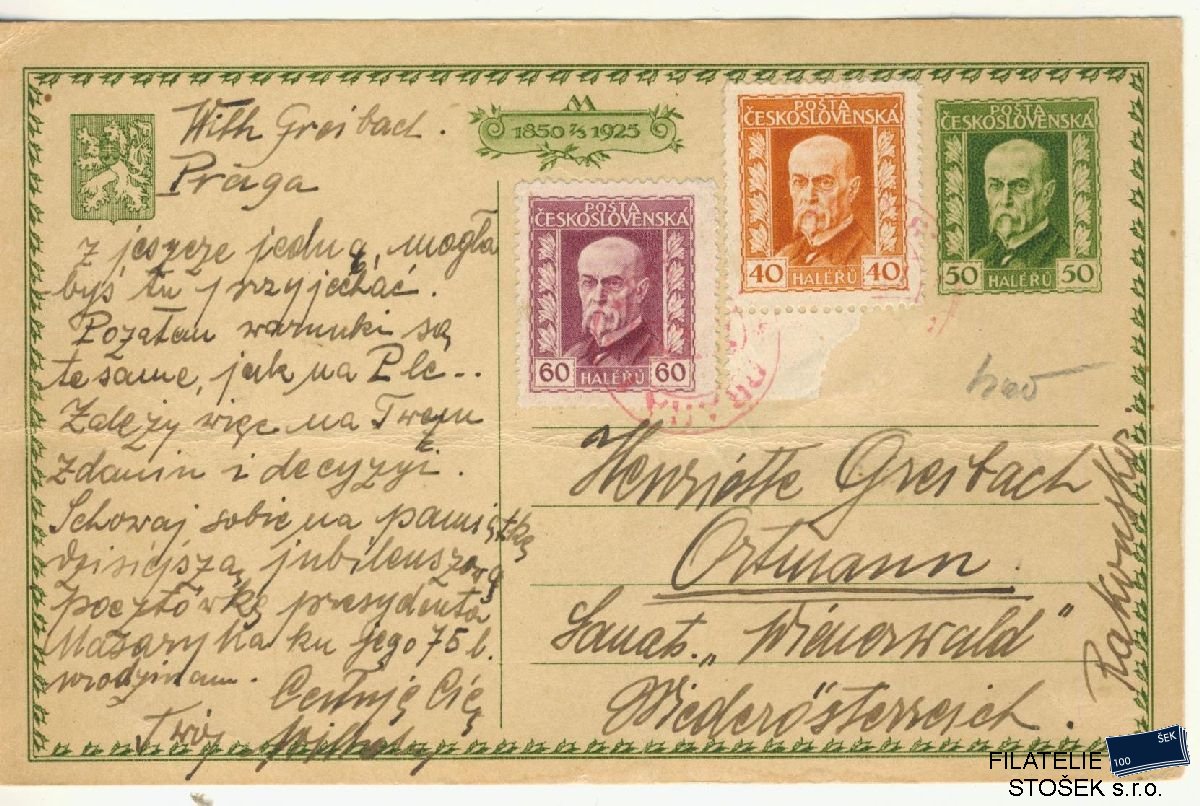 Wilh Greibach.
Praga
1850 7/3 1925
z jeszcze jedną, mogła
byś tu przyjechać.
Pozatem warunki są
te same, jak na Ple..
Zależy więc na Twem
zdaniu i decyzyi.
Schowaj sobie na pamiątkę
dzisiejszą jubileuszową
pocztówkę presydenta
Masaryka ku jego 75 l.
urodzinam.
Całuję Cię
Twój Wilhelm
POŠTA
ČESKOSLOVENSKÁ
60 HALÉŘŮ 60
POŠTA
ČESKOSLOVENSKÁ
40 HALÉŘŮ 40
POŠTA
ČESKOSLOVENSKÁ
50 HALÉŘŮ 50
PRAHA
Henriette Greibach
Ortmann.
Sanat. „Wienerwald"
Niederösterreich.
Rakousko
FILATELIE
STOŠEK s.r.o.
100 ŠEK